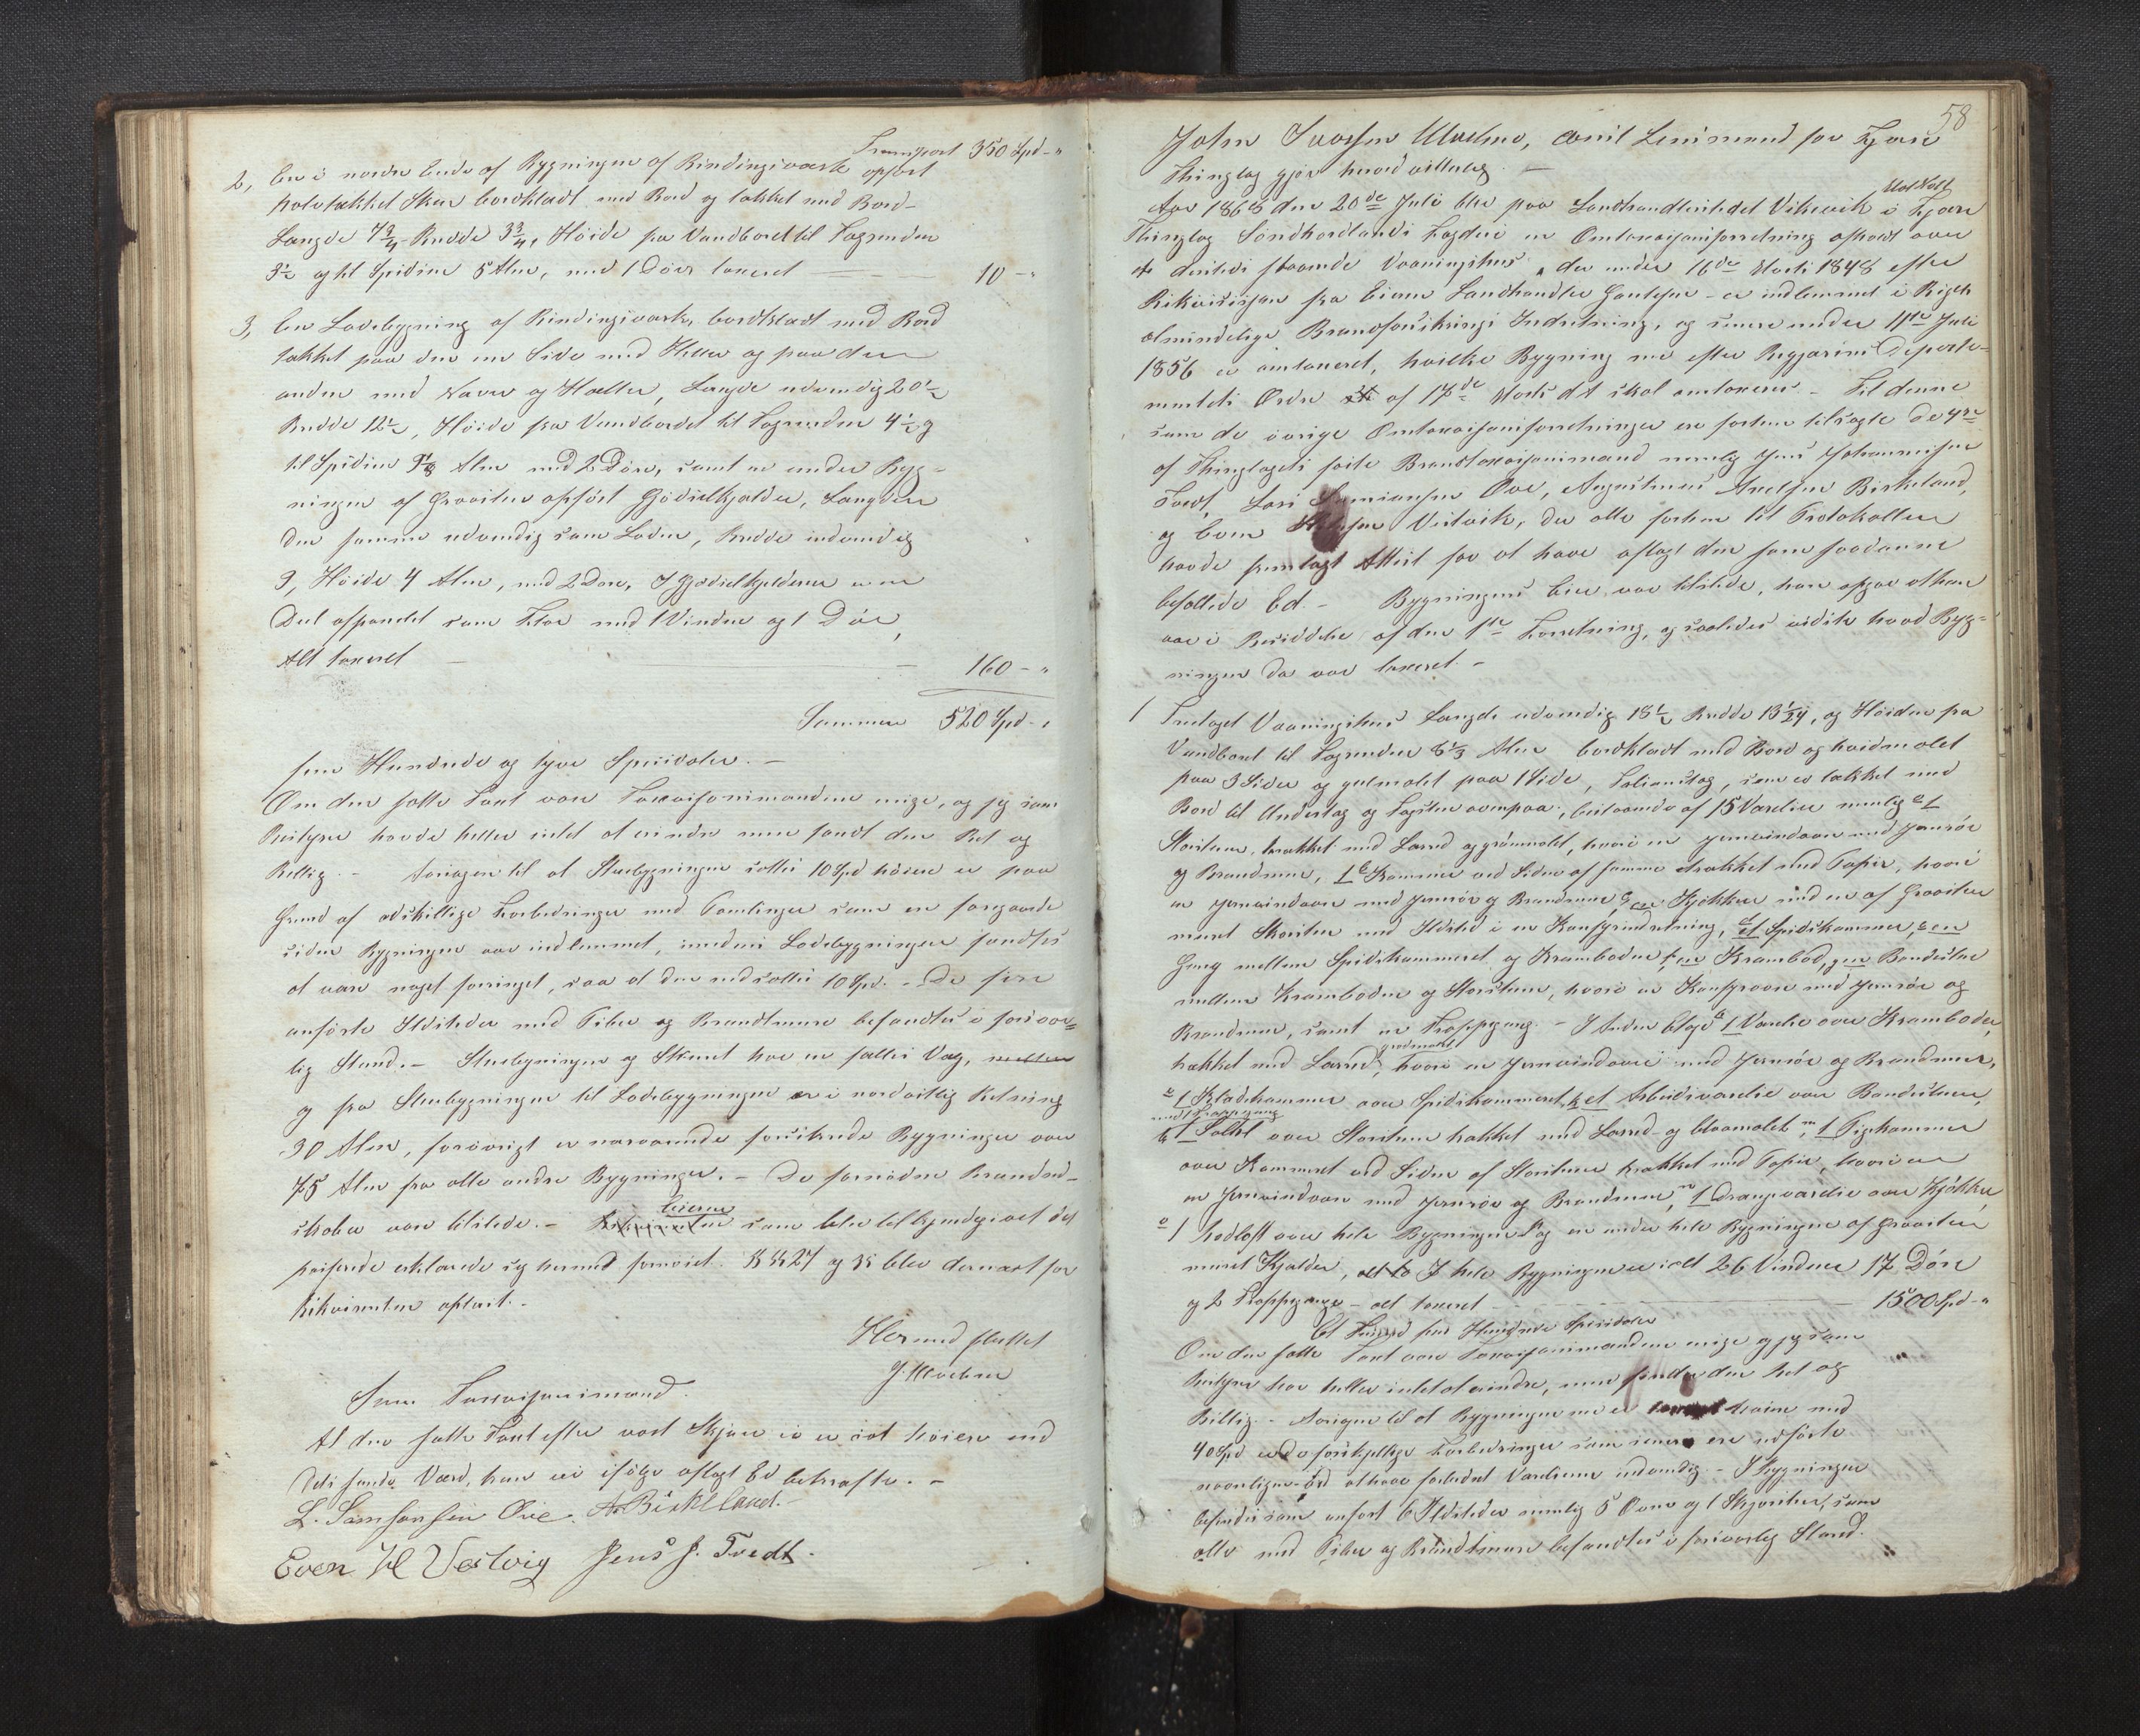 Transport 350 Spd - "
2, En i nordre Ende af Bygningen af Bindingsværk opført
halvtækket Skur bordklædt med Bord og tækket med Bord -
Længde 7 3/4 Bredde 3 3/4, Høide fra Vandbordet til Tagrenden
3 1/2 og til Spidsen 5 Alen, med 1 Dør taxeret — 10 - "
3, En Ladebygning af Bindingsværk, bordklædt med Bord
tækket paa den ene Side med Heller og paa den
anden med Næver og Heller, Længde udvendig 20 1/2
Bredde 12 1/2, Høide fra Vandbordet til Tagrenden 4 1/2 og
til Spidsen Alen med 2 Døre, samt en under Byg-
ningen af Graasten opført Gjødselkjælder, Længden
den samme udvendig som Laden, Bredde indvendig
9, Høide 4 Alen, med 2 Døre, I Gjødselkjelderen er en
Deel afpanelet som Flor med 1 Vindue og 1 Dør,
Alt taxeret — 160 - "
Summa 520 Spd - "
fem Hundrede og tyve Speciedaler. -
Om den satte Taxt vare Taxasjonsmændene enige, og jeg som
Bestyrer havde heller intet at erindre men fandt den Ret og
Billig. - Aarsagen til at Stuebygningen sattes 10 Spd høiere er paa
Grund af adskillige Forbedringer med Tømlinger som er foregaaede
siden Bygningen var indlemmet, medens Ladebygningen fandtes
at være noget forringet, saa at den nedsattes 10 Spd. - De foran
anførte Ildsteder med Piber og Brandmure befandtes i forsvar-
lig Stand. - Stuebygningen og Skuret har en fælles Væg, mellem
og fra Stuebygningen til Ladebygningen er i nordvestlig Retning
30 Alen, forøvrigt er nærværende forsikrede Bygninger over
75 Alen fra alle andre Bygninger. - De fornødne Brandred-
skaber vare tilstede. - Rekvirenten Eieren som blev tilkjendegivet det
passerede erklærede sig hermed fornøiet. §§ 27 og 35 blev dernæst for
Rekvirenten oplæst. -
Hermed sluttet
J. Maehne
Som Taxasjonsmænd.
At den satte Taxt efter vort Skjøn ei er sat høiere end
dets sande Værd, kan vi ifølge aflagt Ed bekræfte. -
L. Samsonsen Øie. A. Birkeland. -
Even H Vestvig Jens J. Tvedt.
58
John Maehne, const Lensmand for Fjære
Thinglag gjør hermed vitterlig. —
Aar 1868 den 20de Juli blev paa Landhandlerstedet Vikevik i Fjære
Thinglag Søndhordlands Fogderi en Omtaxasjonsforretning afholdt over
et dersteds staaende Vaaningshus, der under 16de Marts 1848 efter
Rekvisisjon fra Eieren Landhandler - er indlemmet i Rigets
almindelige Brandforsikrings Indretning, og senere under 11te Juli
1856 er omtaxeret, hvilke Bygning nu efter Regjerins Departe-
mentets Ordre af 17de Marts d A skal omtaxeres - Til denne
som de øvrige Omtaxasjonsforretninger ere forhen tilsagte de 4re
af Thinglagets faste Brandtaxasjonsmænd nemlig Jens Johannessen
Tvedt, Lars Samsonsen Øie, Augustinus Birkeland,
og Even Vestvik, der alle forhen til Protokollen
havde fremlagt Attest for at have aflagt den som saadanne
befalede Ed. - Bygningens Eier var tilstede, han opgav at han
var i Besiddelse af den 1ste Forretning, og saaledes vidste hvad Byg-
ningen da var taxeret. -
1 Toetages Vaaningshus Længde udvendig 18 1/2 Bredde 13 1/24, og Høiden fra
Vandbord til Tagrenden 8 1/3 Alen bordklædt med Bord og hvidmalet
paa 3 Sider og guulmalet paa 1 Side, , som er tækket med
Bord til Undertag og Tagsten ovenpaa, bestaaende af 15 Værelser nemlig a 1
Storstue, trækket med Lærred og grønmalet, hvori en Jernvindovn med Jernrør
og Brandmur, 1 b Kammer ved Siden af samme trækket med Papir, hvori
en Jernvindovn med Jernrør og Brandmur, c en Kjøkken med en af Graasten
muret Skorsten med Ildsted i en , d et Spidskammer, e en
Gang mellem Spidskammeret og Kramboden f en Krambod, g en Bondestue
mellem Kramboden og Storstuen, hvori en med Jernrør og
Brandmur, samt en Trappgang. - I Anden Etage 1 Værelse over Kramboden,
trækket med Lærred grødmalet, hvori en Jernvindovn med Jernrør og Brandmur,
1 Klædekammer over Spidskammeret, k et Arbeidsværelse over Bondestuen,
med 1 Trappgang
1 Sahl over Storstuen trækket med Lærred og blaamalet, m 1 Pigekammer
over Kammeret ved Siden af Storstuen trækket med Papir, hvori er
en Jernvindovn med Jernrør og Brandmur, n 1 Drængeværelse over Kjøkken,
o 1 Mørkloft over hele Bygningen og en under hele Bygningen af Graasten
muret Kjælder, I hele Bygningen er i alt 26 Vinduer 17 Døre
og 2 Trappgange - alt taxeret — 1500 Spd - "
Et Tusind fem Hundrede Speciedaler
Om den satte Taxt vare Taxasjonsmændene enige og jeg som
Bestyrer har heller intet at erindre, men fandt den Ret og
Billig. - Aarsagen til at Bygningen nu er høiere med
40 Spd er forskjellige Forbedringer som senere ere udførte
navnligen ved at have forbedret Værelserne indvendig - I Bygningen
befindes som anført 6 Ildsteder nemlig 5 Ovne og 1 Skorsten, som
alle med Piber og Brandmure befandtes i forsvarlig Stand.